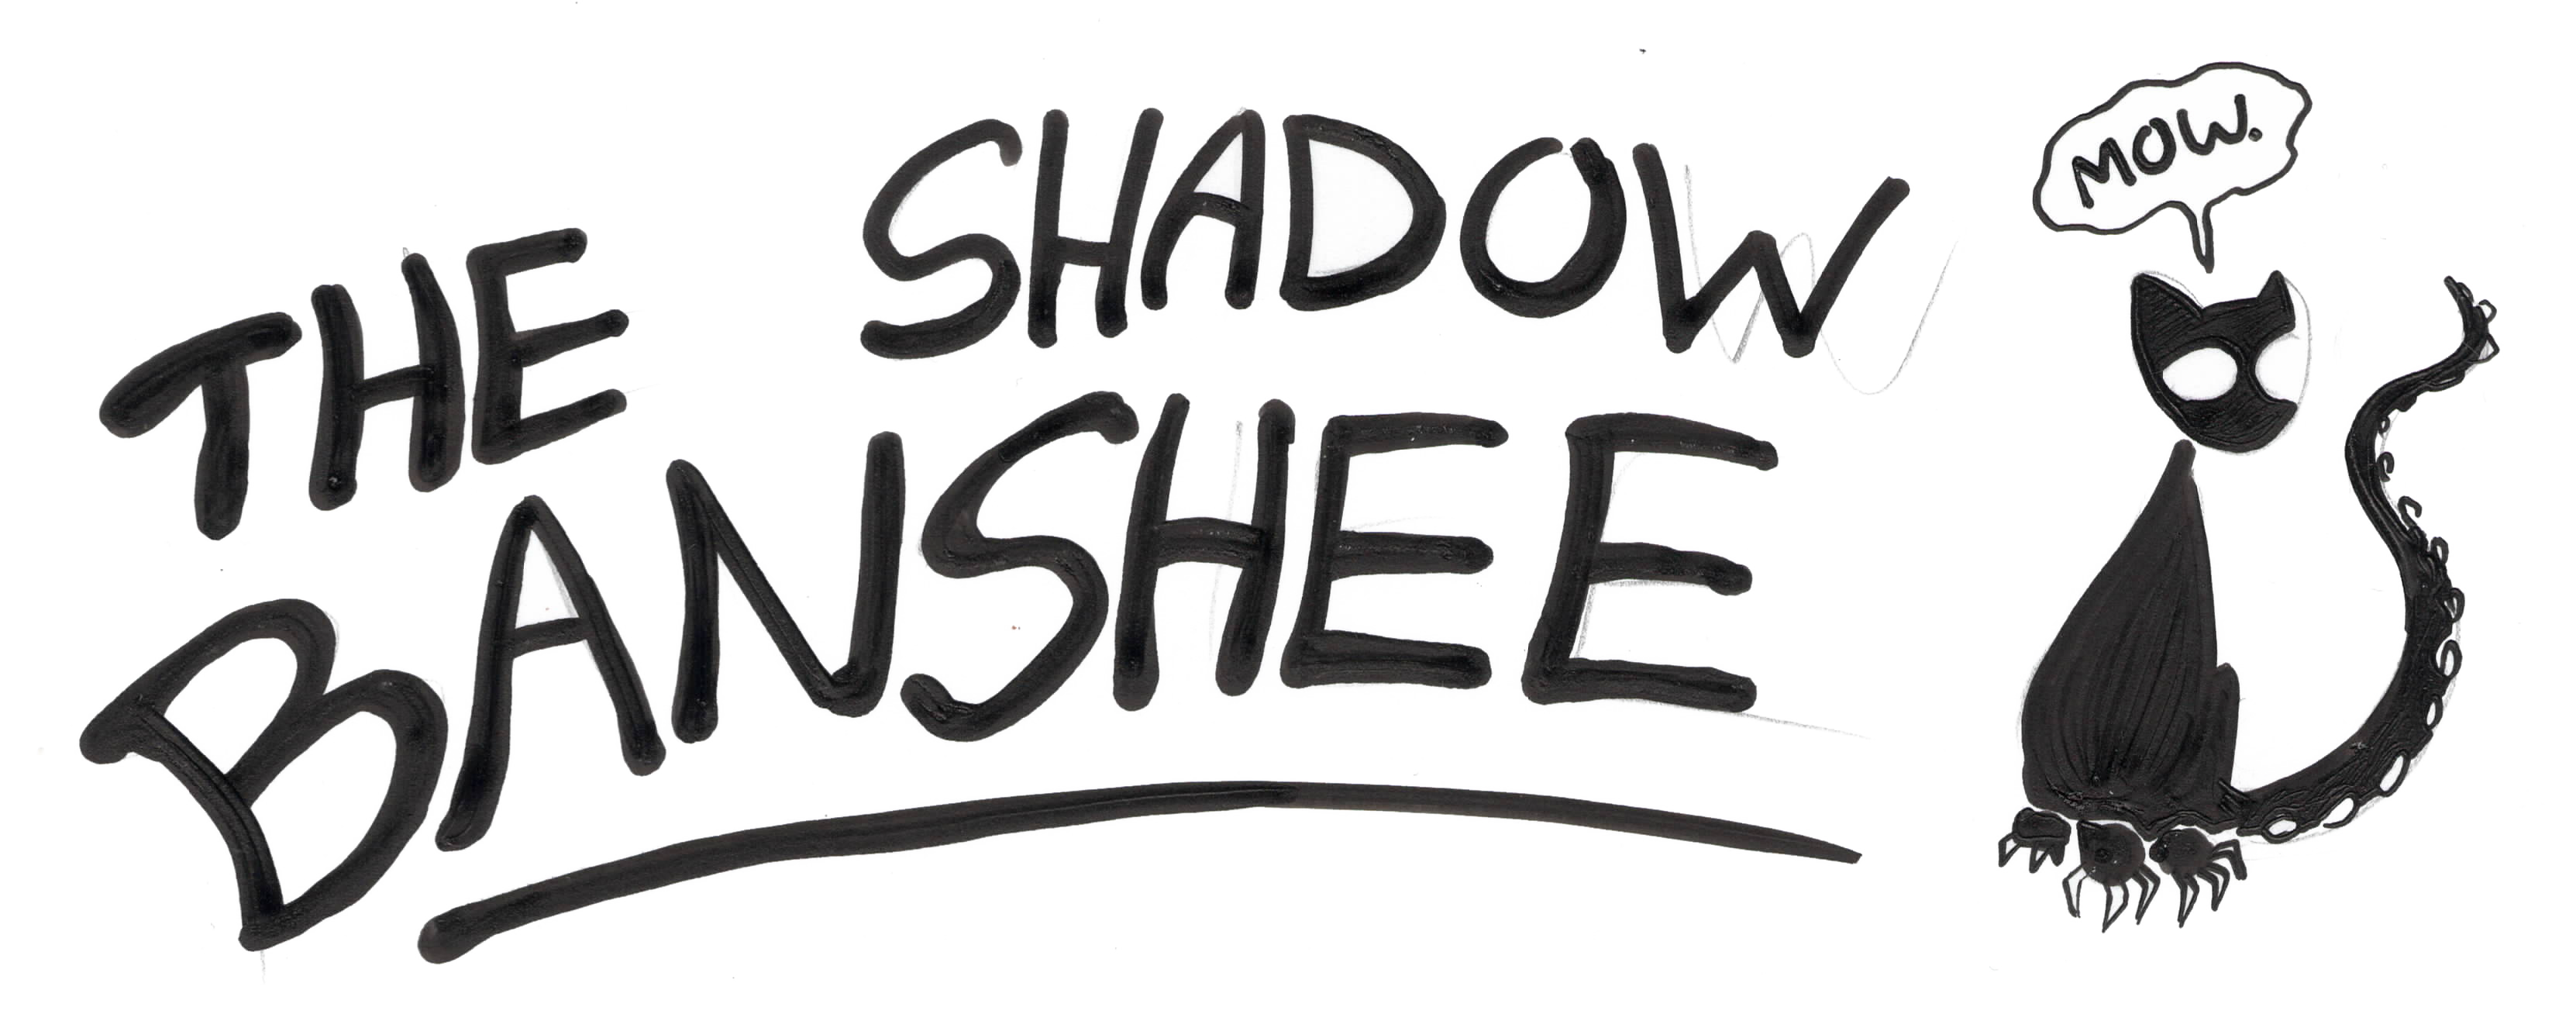 THE SHADOW
BANSHEE
MOW.